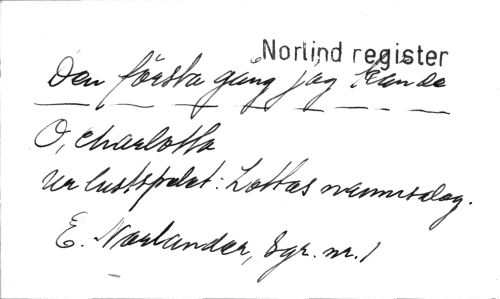 Norlind register
Den första gång jag kände
O, Charlotta
ur lustspelet: Lottas namnsdag.
E. Norlander, Sgr. nr. 1